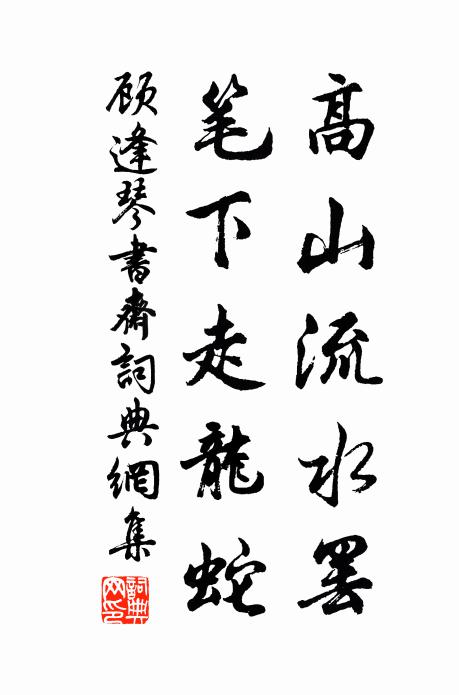 高山流水罢
笔下走龍蛇
顾逢琴書齋詞典網集
詞典网印